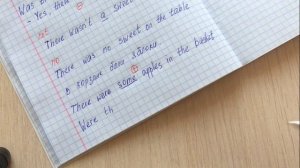 Was th
- Yes, there
not
There wasn't a sweet
no
There was no sweet on the table
В корзине были яблоки
There were some apples in the basket
Were th